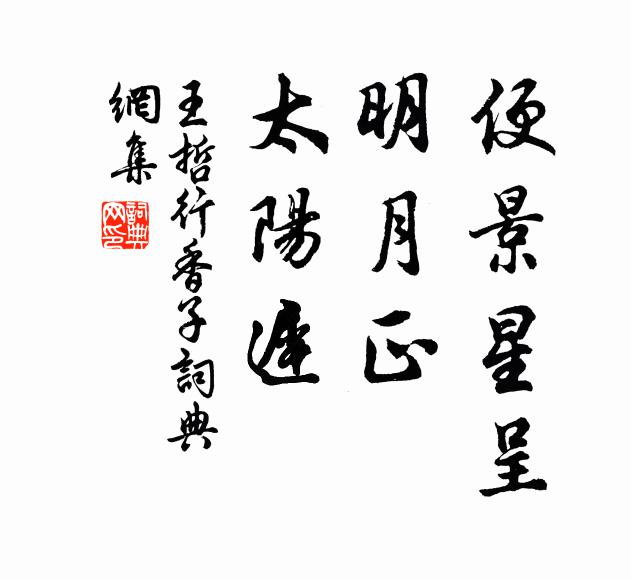 便景星呈
明月正
太陽遲
王哲行香子詞典
網集
詞典
网印